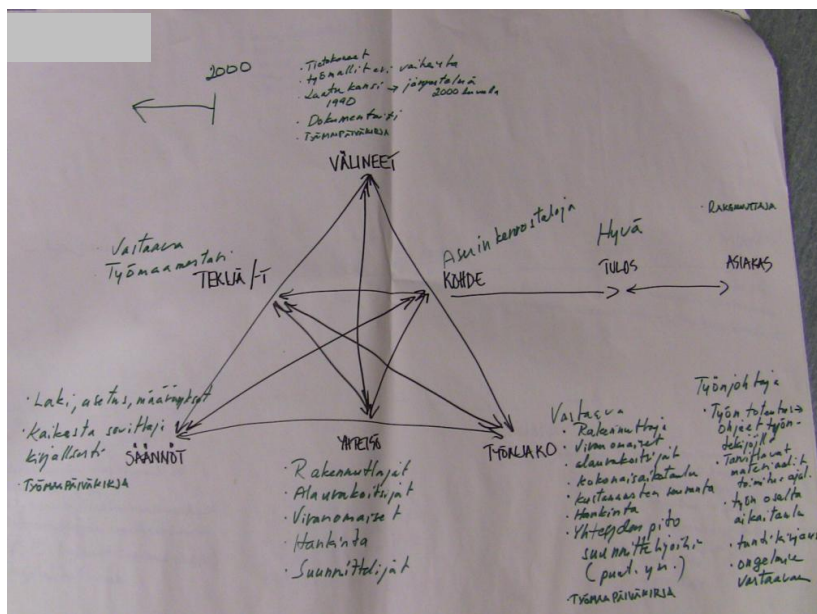 2000
· Tietokoneet
· työmallit eri vaiheista
· Laatukansi → järjestelmä
1990 2000 luvulla
· Dokumentointi
· TYÖMAAPÄIVÄKIRJA
VÄLINEET
Vastaava
Työmaamestari
TEKIJÄ/-T
Asuinkerrostaloja
KOHDE
Hyvä
TULOS
· RAKENNUTTAJA
ASIAKAS
· Laki, asetus, määräykset
· Kaikesta sovittaji
kirjallisesti
· TYÖMAAPÄIVÄKIRJA
SÄÄNNÖT
YHTEISÖ
· Rakennuttajat
· Aliurakoitsijat
· Viranomaiset
· Hankinta
· Suunnittelijat
TYÖNJAKO
Vastaava
· Rakennuttaja
· Viranomaiset
· aliurakoitsijat
· kokonaisaikataulu
· kustannusten seuranta
· Hankinta
· Yhteydenpito
suunnittelijoihin
(puut. ym.)
· TYÖMAAPÄIVÄKIRJA
Työnjohtaja
· Työn toteutus →
ohjeet työn-
tekijöille
· Tarvittavat
materiaalit
toimitusajat
· työn osalta
aikataulu
· tuntikirjaus
· ongelmia
vastaavan